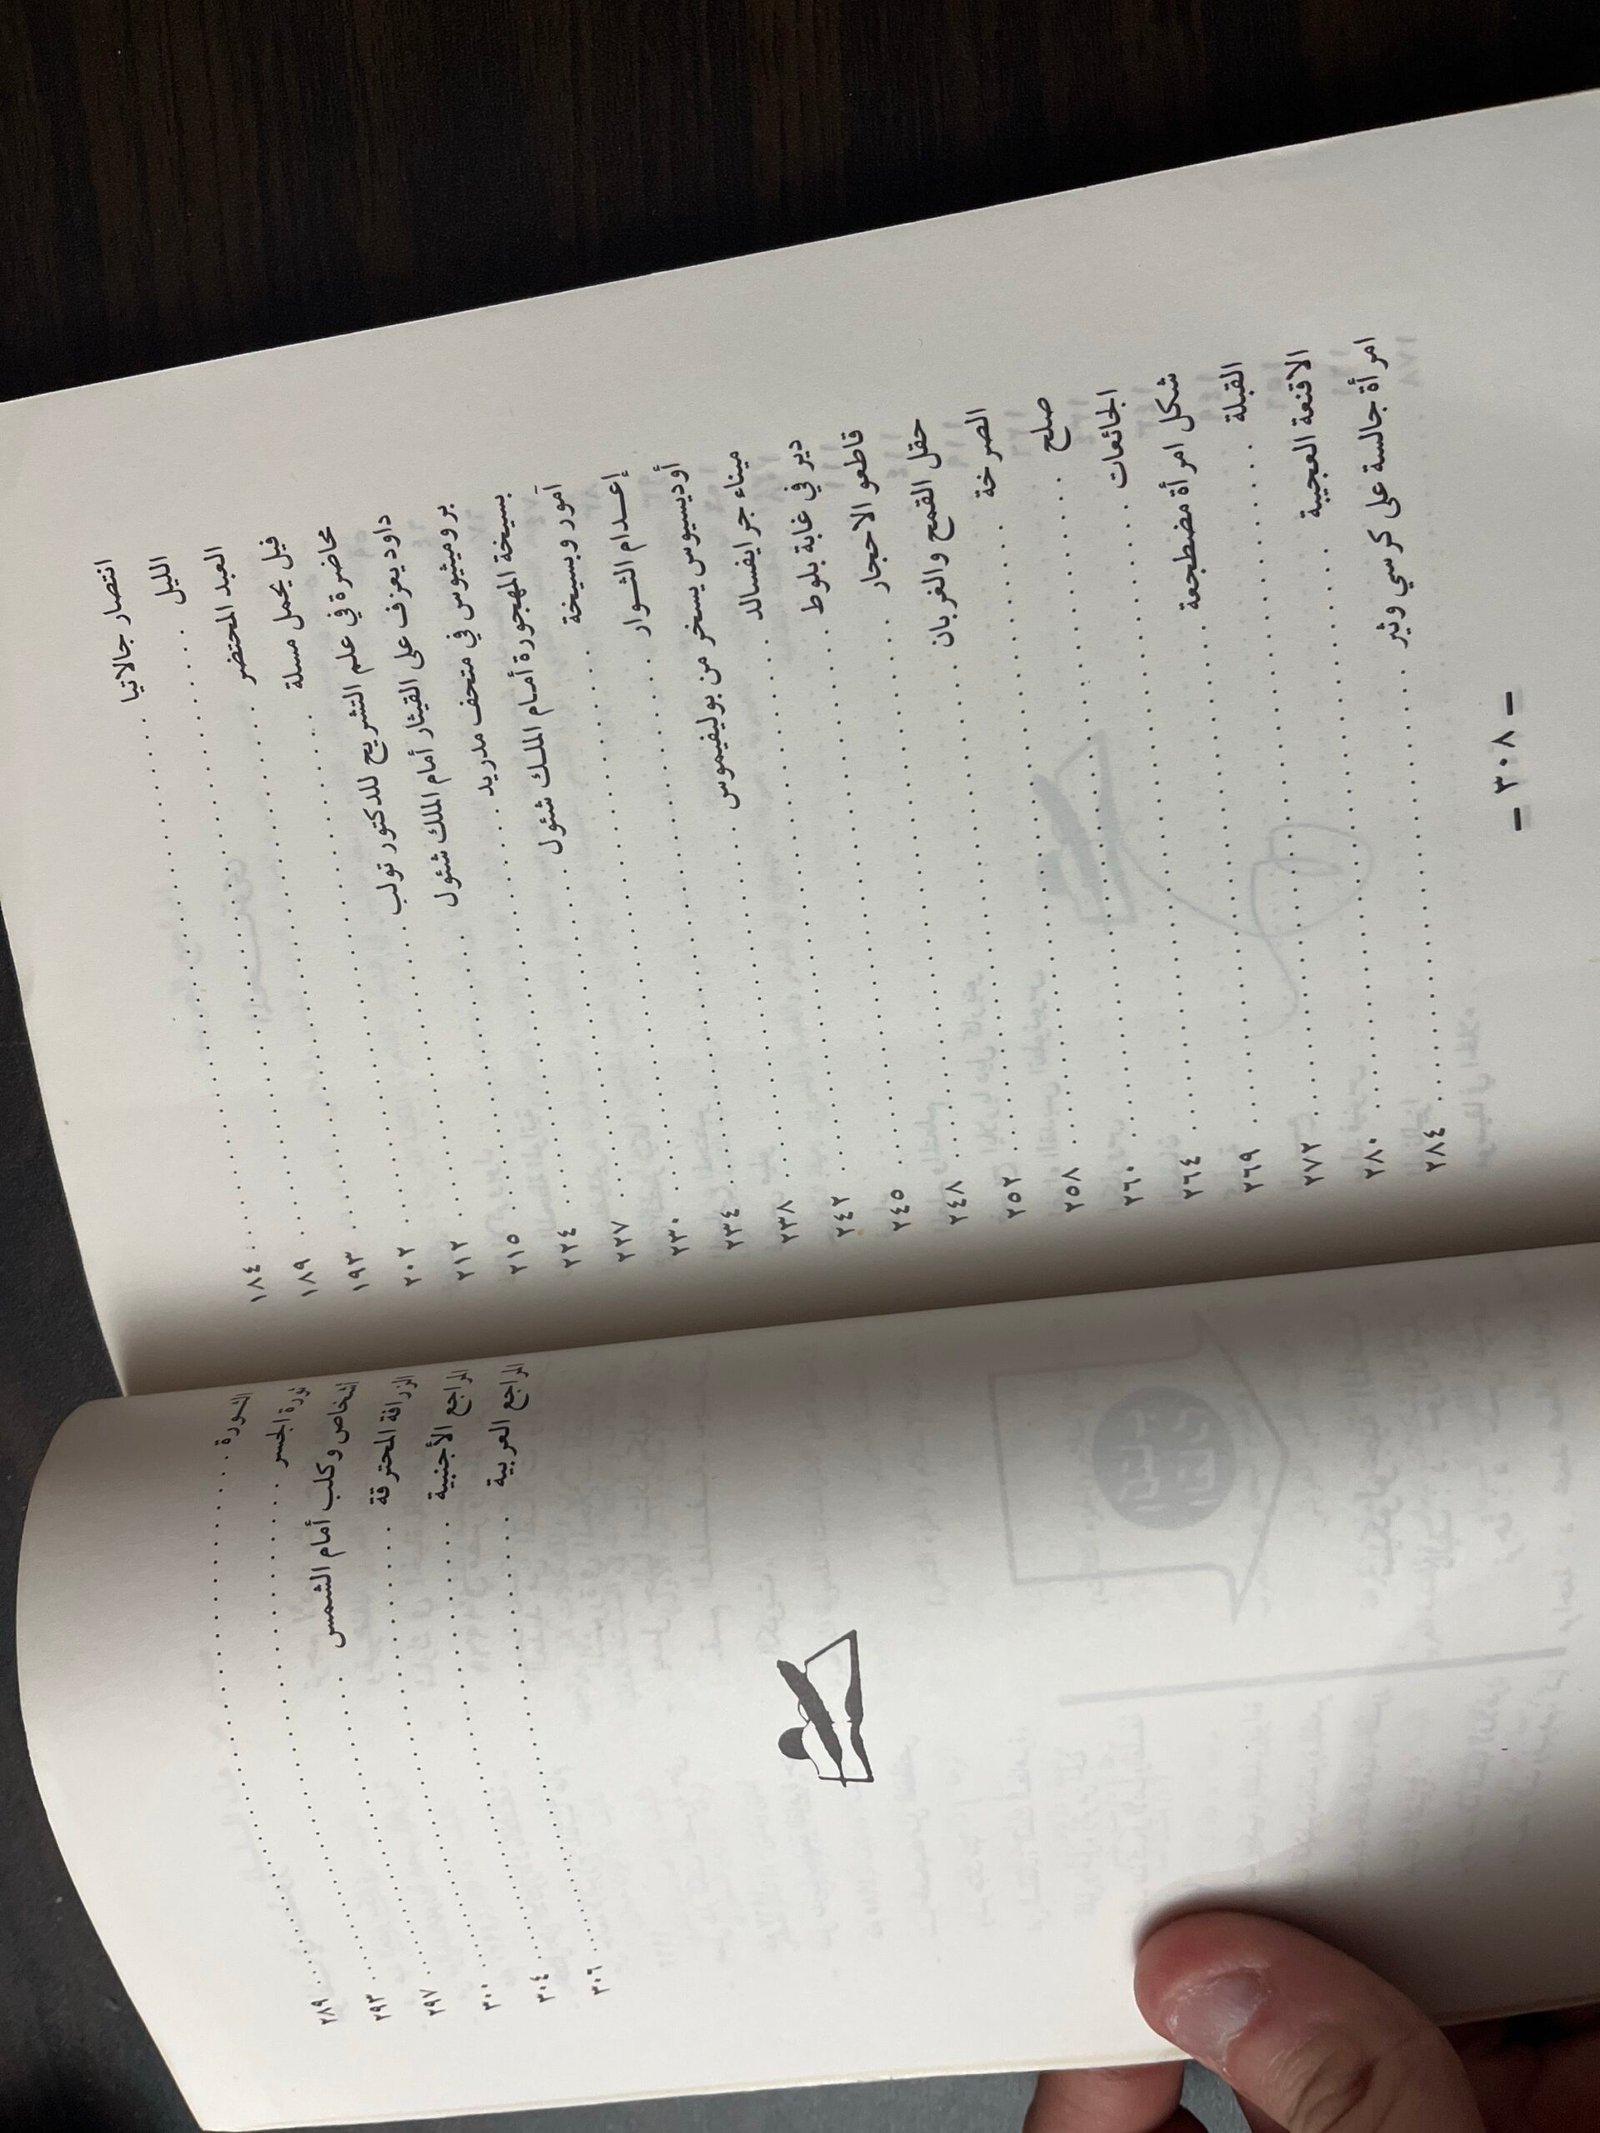 انتصار جالاتيا ........ ١٨٤
الليل ........ ١٨٩
العبد المحتضر ........ ١٩٣
فيل يحمل مسلة ........ ٢٠٢
محاضرة في علم التشريح للدكتور تولب ........ ٢١٢
داود يعزف على القيثار أمام الملك شئول ........ ٢١٥
بروميثيوس في متحف مدريد ........ ٢٢٤
بسيخة المهجورة أمام الملك شئول ........ ٢٢٧
آمور وبسيخة ........ ٢٣٠
إعدام الثوار ........ ٢٣٤
أوديسيوس يسخر من بوليفيموس ........ ٢٣٨
ميناء جرايفسالد ........ ٢٤٢
دير في غابة بلوط ........ ٢٤٥
قاطعو الاحجار ........ ٢٤٨
حقل القمح والغربان ........ ٢٥٢
الصرخة ........ ٢٥٨
صلح ........ ٢٦٠
الجائعات ........ ٢٦٤
شكل امرأة مضطجعة ........ ٢٦٩
القبلة ........ ٢٧٢
الاقنعة العجيبة ........ ٢٨٠
امرأة جالسة على كرسي وثير ........ ٢٨٤
– ٣٠٨ –
........ ٢٨٩
الجسر ........ ٢٩٣
أشخاص وكلب أمام الشمس ........ ٢٩٧
الزرافة المحترقة ........ ٣٠٠
المراجع الأجنبية ........ ٣٠٤
المراجع العربية ........ ٣٠٦